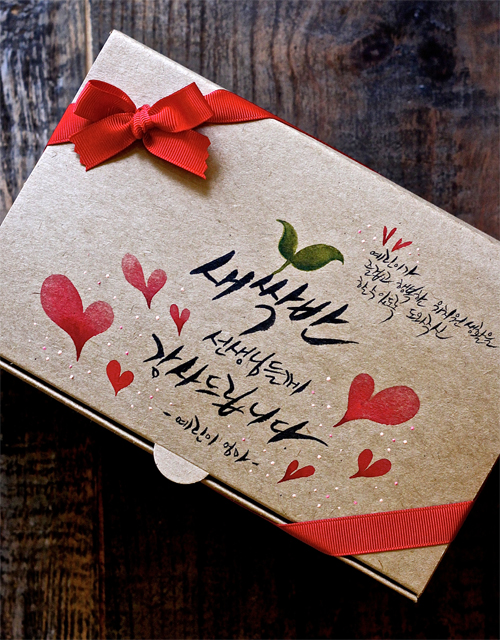 예린이가
즐겁고 행복한 유치원 생활을
할 수 있도록 도와주신
새싹반
선생님들께
감사드립니다
- 예린이 엄마 -